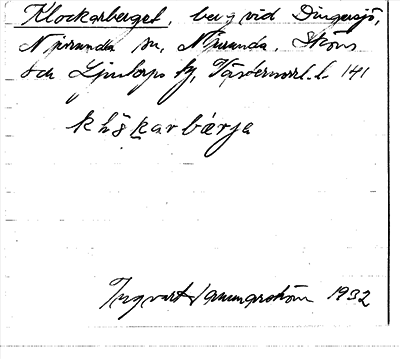 Klockarberget, berg vid Dingersjö,
Njurunda sn, Njurunda, Sköns
o Ljustorps tg, Västernorrl. l. 141
khåkarbærja
Ingvart 1932